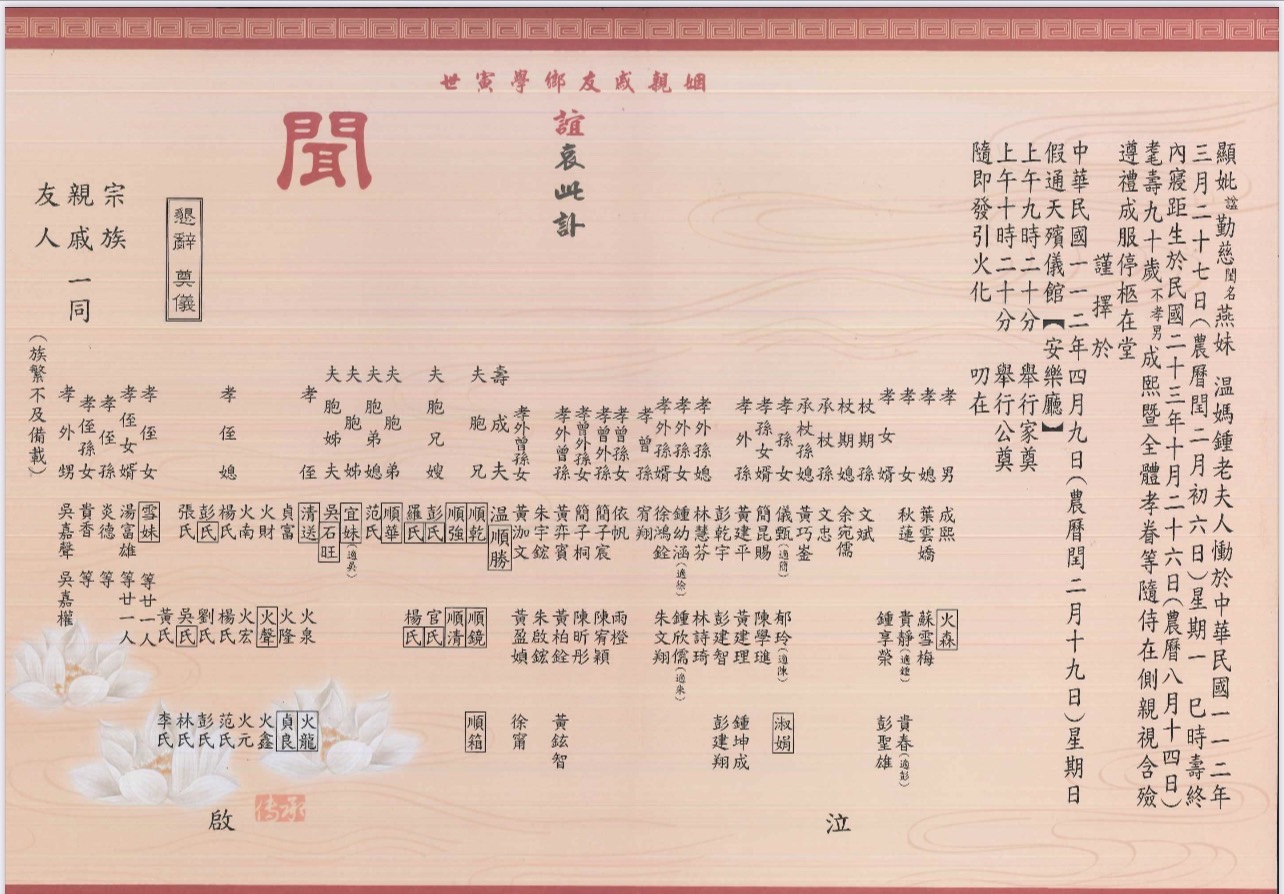 顯妣諡勤慈閨名燕妹 温媽鍾老夫人慟於中華民國一一二年
三月二十七日（農曆閏二月初六日）星期一 巳時壽終
內寢距生於民國二十三年十月二十六日（農曆八月十四日）
耄壽九十歲不孝男成熙暨全體孝眷等隨侍在側親視含殮
遵禮成服停柩在堂
謹擇於
中華民國一一二年四月九日（農曆閏二月十九日）星期日
假通天殯儀館【安樂廳】
上午九時二十分 舉行家奠
上午十時二十分 舉行公奠
隨即發引火化 叨在
姻親戚友鄉學寅世
誼哀此訃
聞
孝男 成熙 火森
孝媳 葉雲嬌 蘇雪梅
孝女 秋蓮 貴靜（適鍾） 貴春（適彭）
孝女婿 鍾享榮 彭聖雄
杖期孫 文斌
杖期媳 余宛儒
承杖孫 文忠
承杖孫媳 黃巧崟
孝孫女 儀甄（適簡） 郁玲（適陳） 淑娟
孝孫女婿 簡昆賜 陳學璡
孝外孫 黃建平 黃建理 鍾坤成
彭乾宇 彭建智 彭建翔
孝外孫媳 林慧芬 林詩琦
孝外孫女 鍾幼涵（適徐） 鍾欣儒（適朱）
孝外孫婿 徐鴻銓 朱文翔
孝曾孫 宥翔
孝曾孫女 依帆 雨橙
孝外曾孫女 簡子宸 陳宥穎
孝外曾孫 簡子桐 陳昕彤
孝外曾孫 黃弈賓 黃柏銓 黃鉉智
朱宇鋐 朱啟鋐
孝外曾孫女 黃泇文 黃盈媜 徐甯
壽成夫 温順勝
夫胞兄 順乾 順鏡 順箱
順強 順清
夫胞兄嫂 彭氏 官氏
羅氏 楊氏
夫胞弟 順華
夫胞弟媳 范氏
夫胞姊 宜妹（適吳）
夫胞姊夫 吳石旺
孝侄 清送 火泉 火龍
貞富 火隆 貞良
火財 火聲 火鑫
火南 火宏 火元
孝侄媳 楊氏 楊氏 范氏
彭氏 劉氏 彭氏
張氏 吳氏 林氏
黃氏 李氏
孝侄女 雪妹 等廿一人
孝侄女婿 湯富雄 等廿一人
孝侄孫 炎德 等
孝侄孫女 貴香 等
孝外甥 吳嘉聲 吳嘉權
（族繁不及備載）
泣
啟
懇辭 奠儀
宗族
親戚一同
友人
傳承